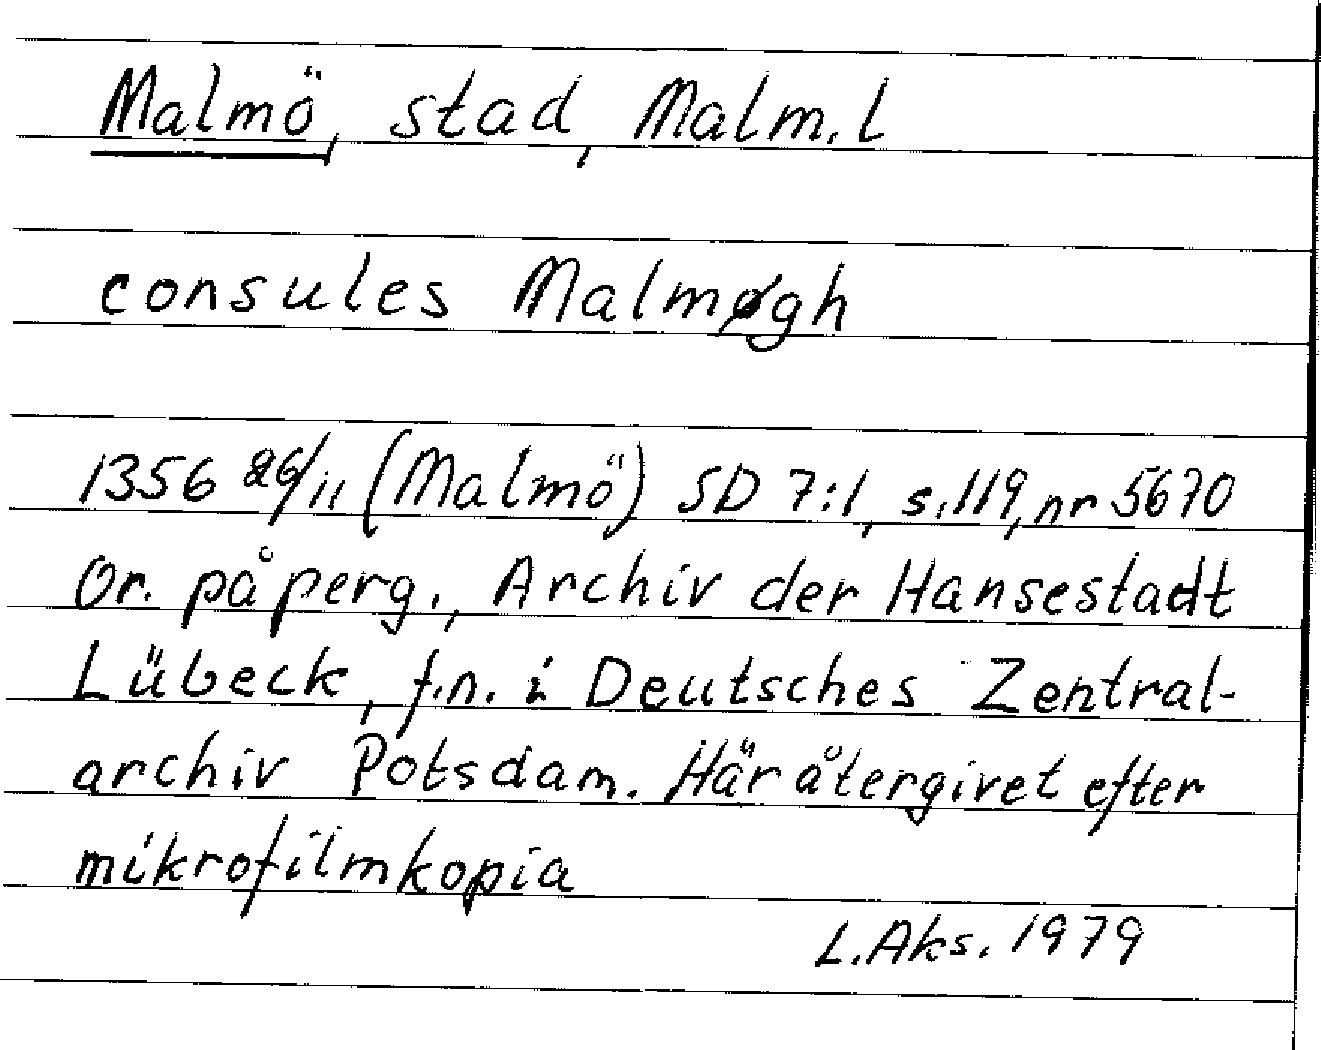 Malmö, stad, Malm. l
consules Malmøgh
1356 26/11 (Malmö) SD 7:1, s. 119, nr 5670
Or. på perg., Archiv der Hansestadt
Lübeck, f.n. i Deutsches Zentral-
archiv Potsdam. Här återgivet efter
mikrofilmkopia
L. Aks. 1979